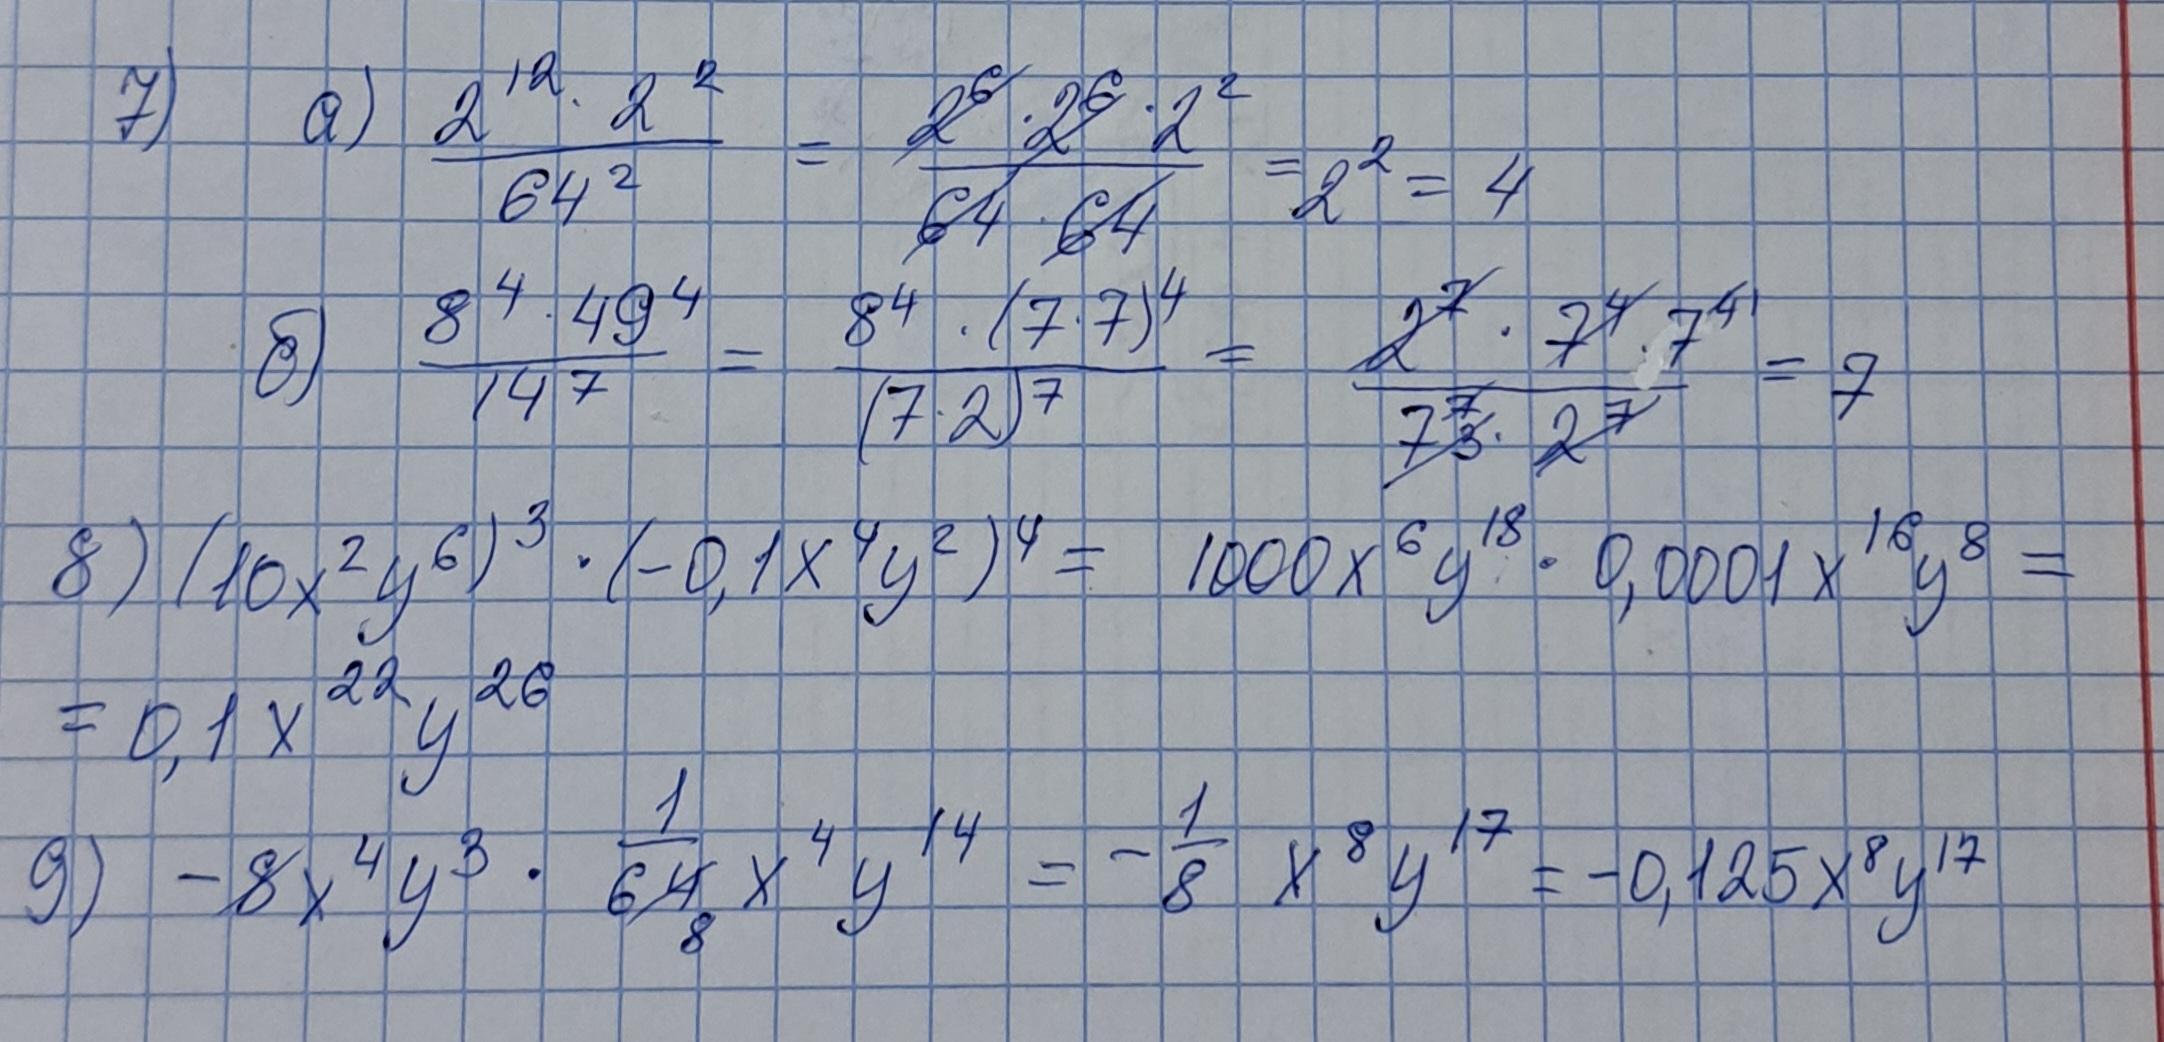 7) а) \frac{2^{12} \cdot 2^2}{64^2} = \frac{2^6 \cdot 2^6 \cdot 2^2}{64 \cdot 64} = 2^2 = 4
б) \frac{8^4 \cdot 49^4}{14^7} = \frac{8^4 \cdot (7 \cdot 7)^4}{(7 \cdot 2)^7} = \frac{2^7 \cdot 7^4 \cdot 7^{4 1}}{7^{7 3} \cdot 2^7} = 7
8) (10x^2y^6)^3 \cdot (-0,1x^4y^2)^4 = 1000x^6y^{18} \cdot 0,0001x^{16}y^8 =
= 0,1x^{22}y^{26}
9) -8x^4y^3 \cdot \frac{1}{64_8} x^4y^{14} = -\frac{1}{8} x^8y^{17} = -0,125x^8y^{17}